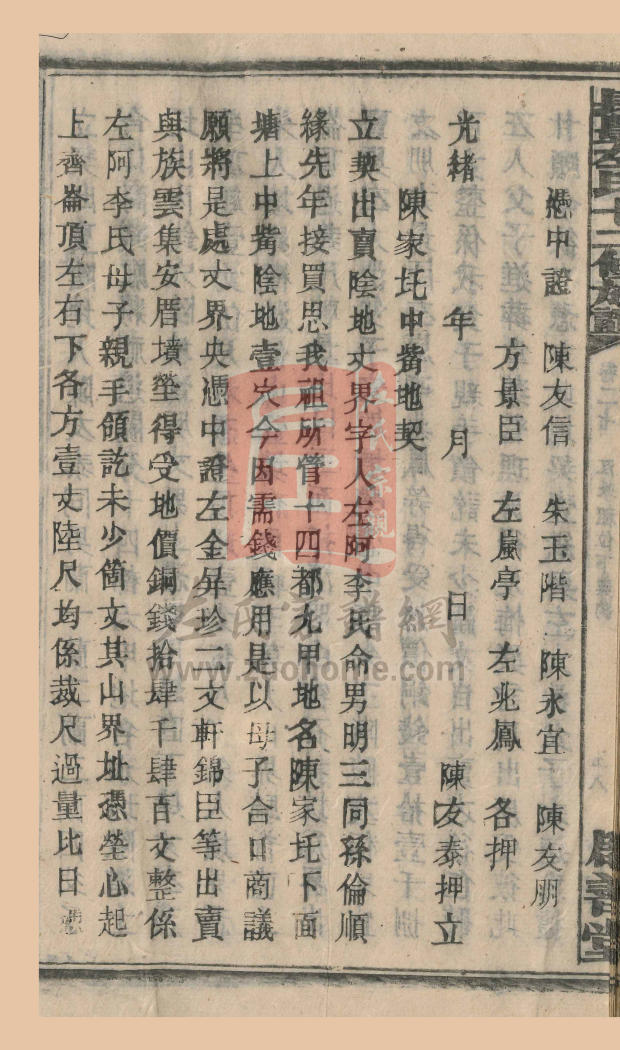 憑中證　陳友信　朱玉階　陳永宜　陳友朋
方景臣　左嵐亭　左兆鳳　各押
光緒　年　月　日　陳友泰押立
陳家圫中觜地契
立契出賣陰地丈界字人左阿李氏命男明三同孫倫順
緣先年接買思我祖所管十四都九甲地名陳家圫下面
塘上中觜陰地壹穴今因需錢應用是以母子合口商議
願將是處丈界央憑中證左金昇珍二文軒錦臣等出賣
與族雲集安厝墳塋得受地價銅錢拾肆千肆百文整係
左阿李氏母子親手領訖未少箇文其山界址憑塋心起
上齊崙頂左右下各方壹丈陸尺均係裁尺過量比日憑
左氏宗親
左氏家譜網
www.zuohome.com